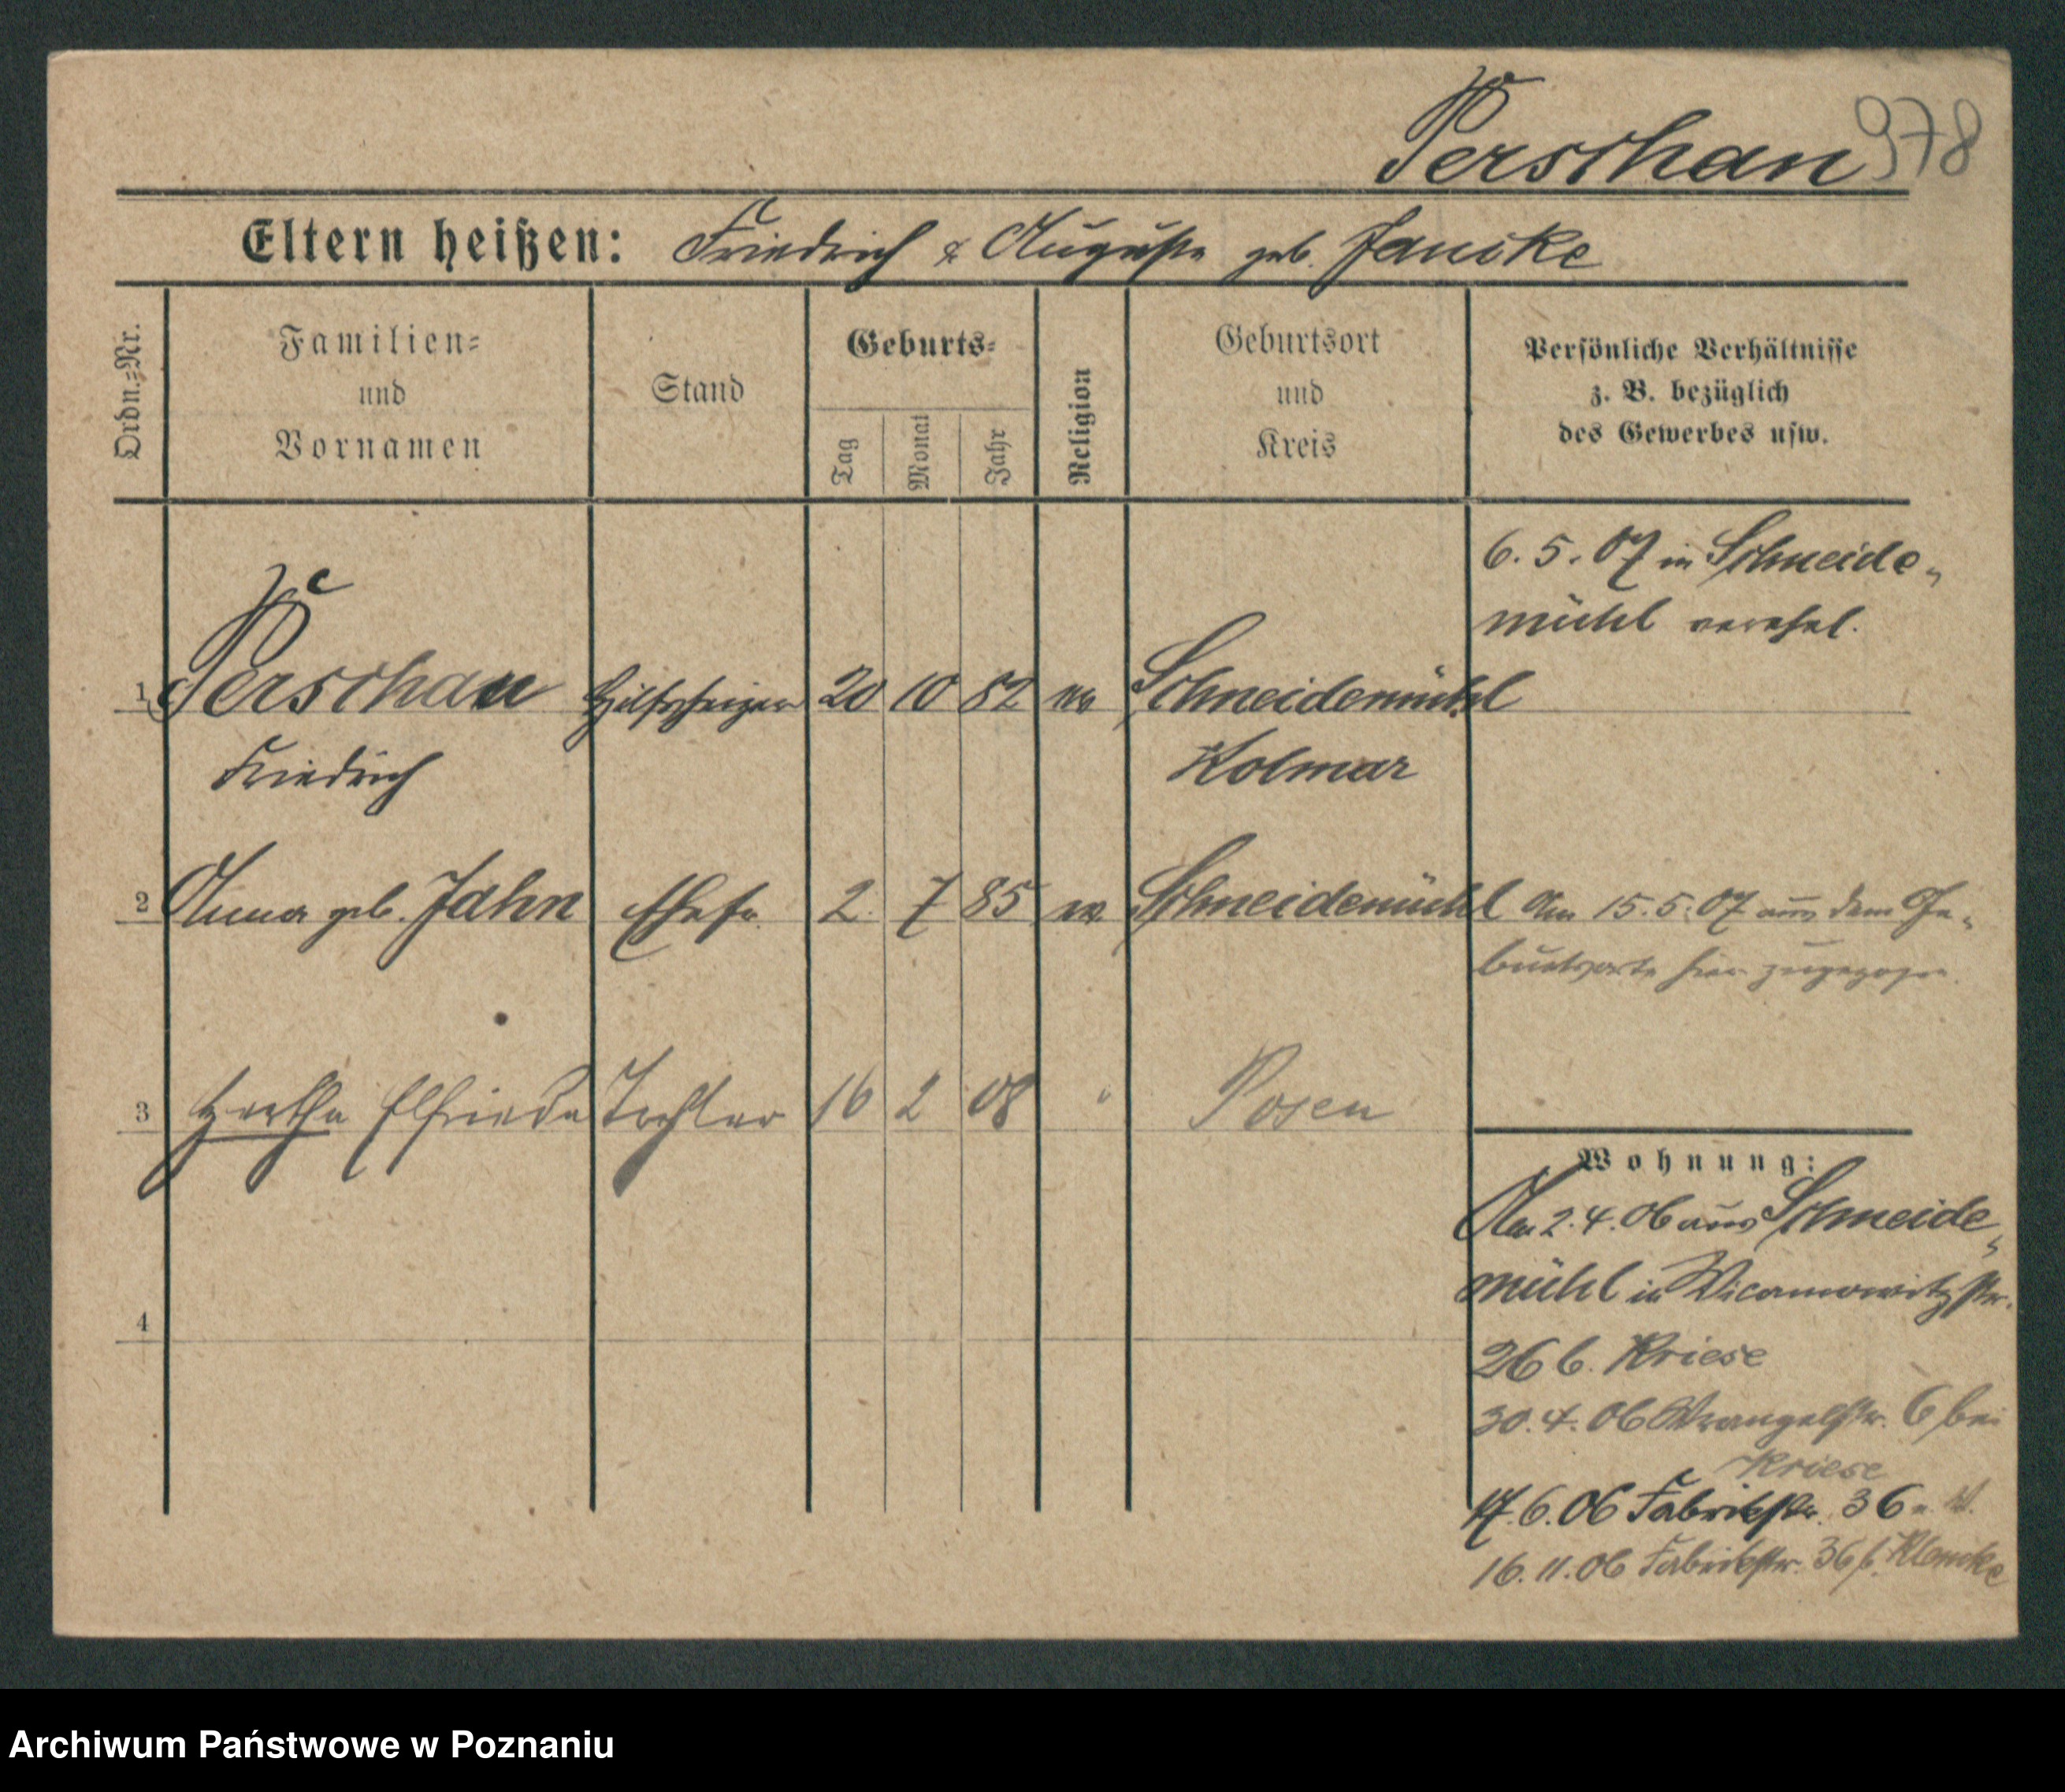 Perschan 978
Eltern heißen: Friedrich & Auguste geb. Jancke
Ordn.-Nr.
Familien-
und
Vornamen
Stand
Geburts-
Tag
Monat
Jahr
Religion
Geburtsort
und
Kreis
Persönliche Verhältnisse
z. B. bezüglich
des Gewerbes usw.
6. 5. 07 in Schneide-
mühl verehel.
1 Perschau Hilfsheizer 20 10 82 ev Schneidemühl
Friedrich Kolmar
2 Anna geb. Jahn Ehefr. 2. 7 85 ev Schneidemühl Am 15. 5. 07 aus dem Ge-
burtsorte hier zugezogen.
3 Hertha Elfriede Tochter 16 2 08 " Posen
Wohnung:
Am 2. 4. 06 aus Schneide-
mühl in str.
4
26 b. Kriese
30. 4. 06 Wrangelstr. 6 bei
Kriese
17. 6. 06 Fabrikstr. 36
16. 11. 06 Fabrikstr. 36 b.
Archiwum Państwowe w Poznaniu